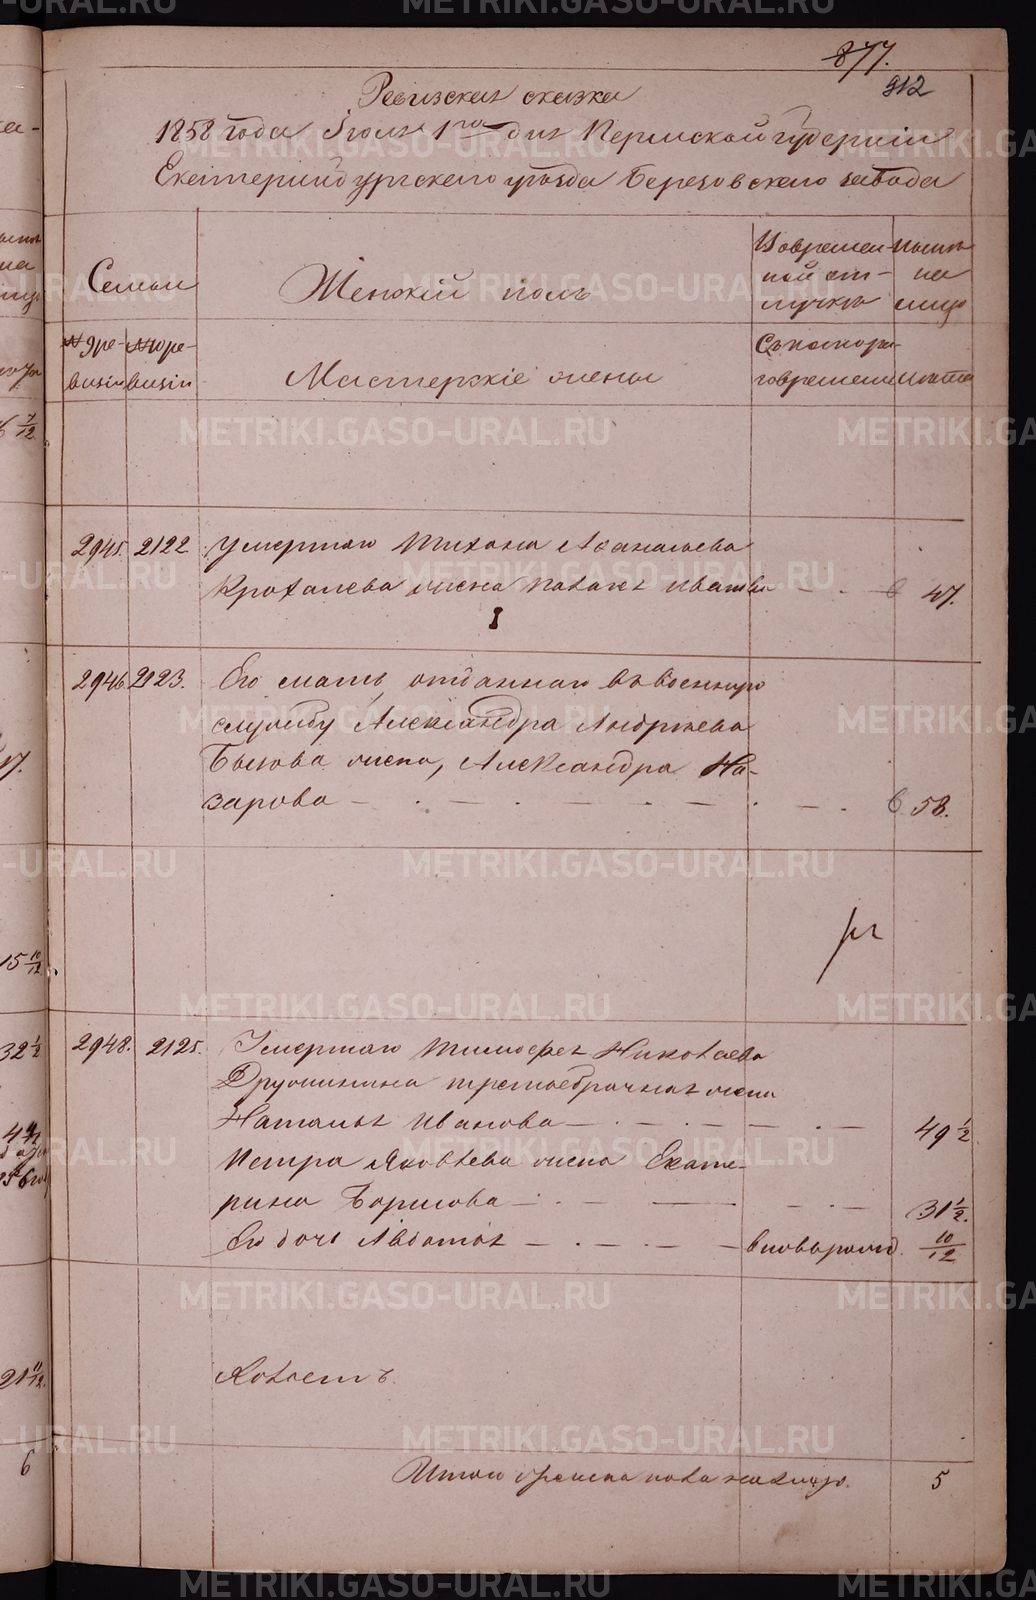 877.
912
Ревизская сказка
1858 года Июля 1го дня Пермской губернии
Екатеринбургского уѣзда Березовского завода
Семьи
Женскій полъ
Во времен-
ной от-
лучкѣ
Нынѣ
на
лицо
№ 9 ре-
визіи
№ 10 ре-
визіи
Мастерскіе жены
Съ котора-
го времени
Лѣта
2945. 2122 Умершаго Тихона Афанасьева
Крохалева жена Пелагея Иванова 47.
2946. 2123. Его мать, отданнаго въ военную
службу Александра Андреева
Бызова жена, Александра На-
зарова 58.
2948. 2125. Умершаго Тимофея Николаева
Дружинина третьебрачная жена
Наталья Иванова 49 1/2
Петра Яковлева жена Екате-
рина Борисова 31 1/2.
Его дочь Авдотья вноворожд. 10/12
Холостъ.
Итого женска пола на лицо. 5
METRIKI.GASO-URAL.RU